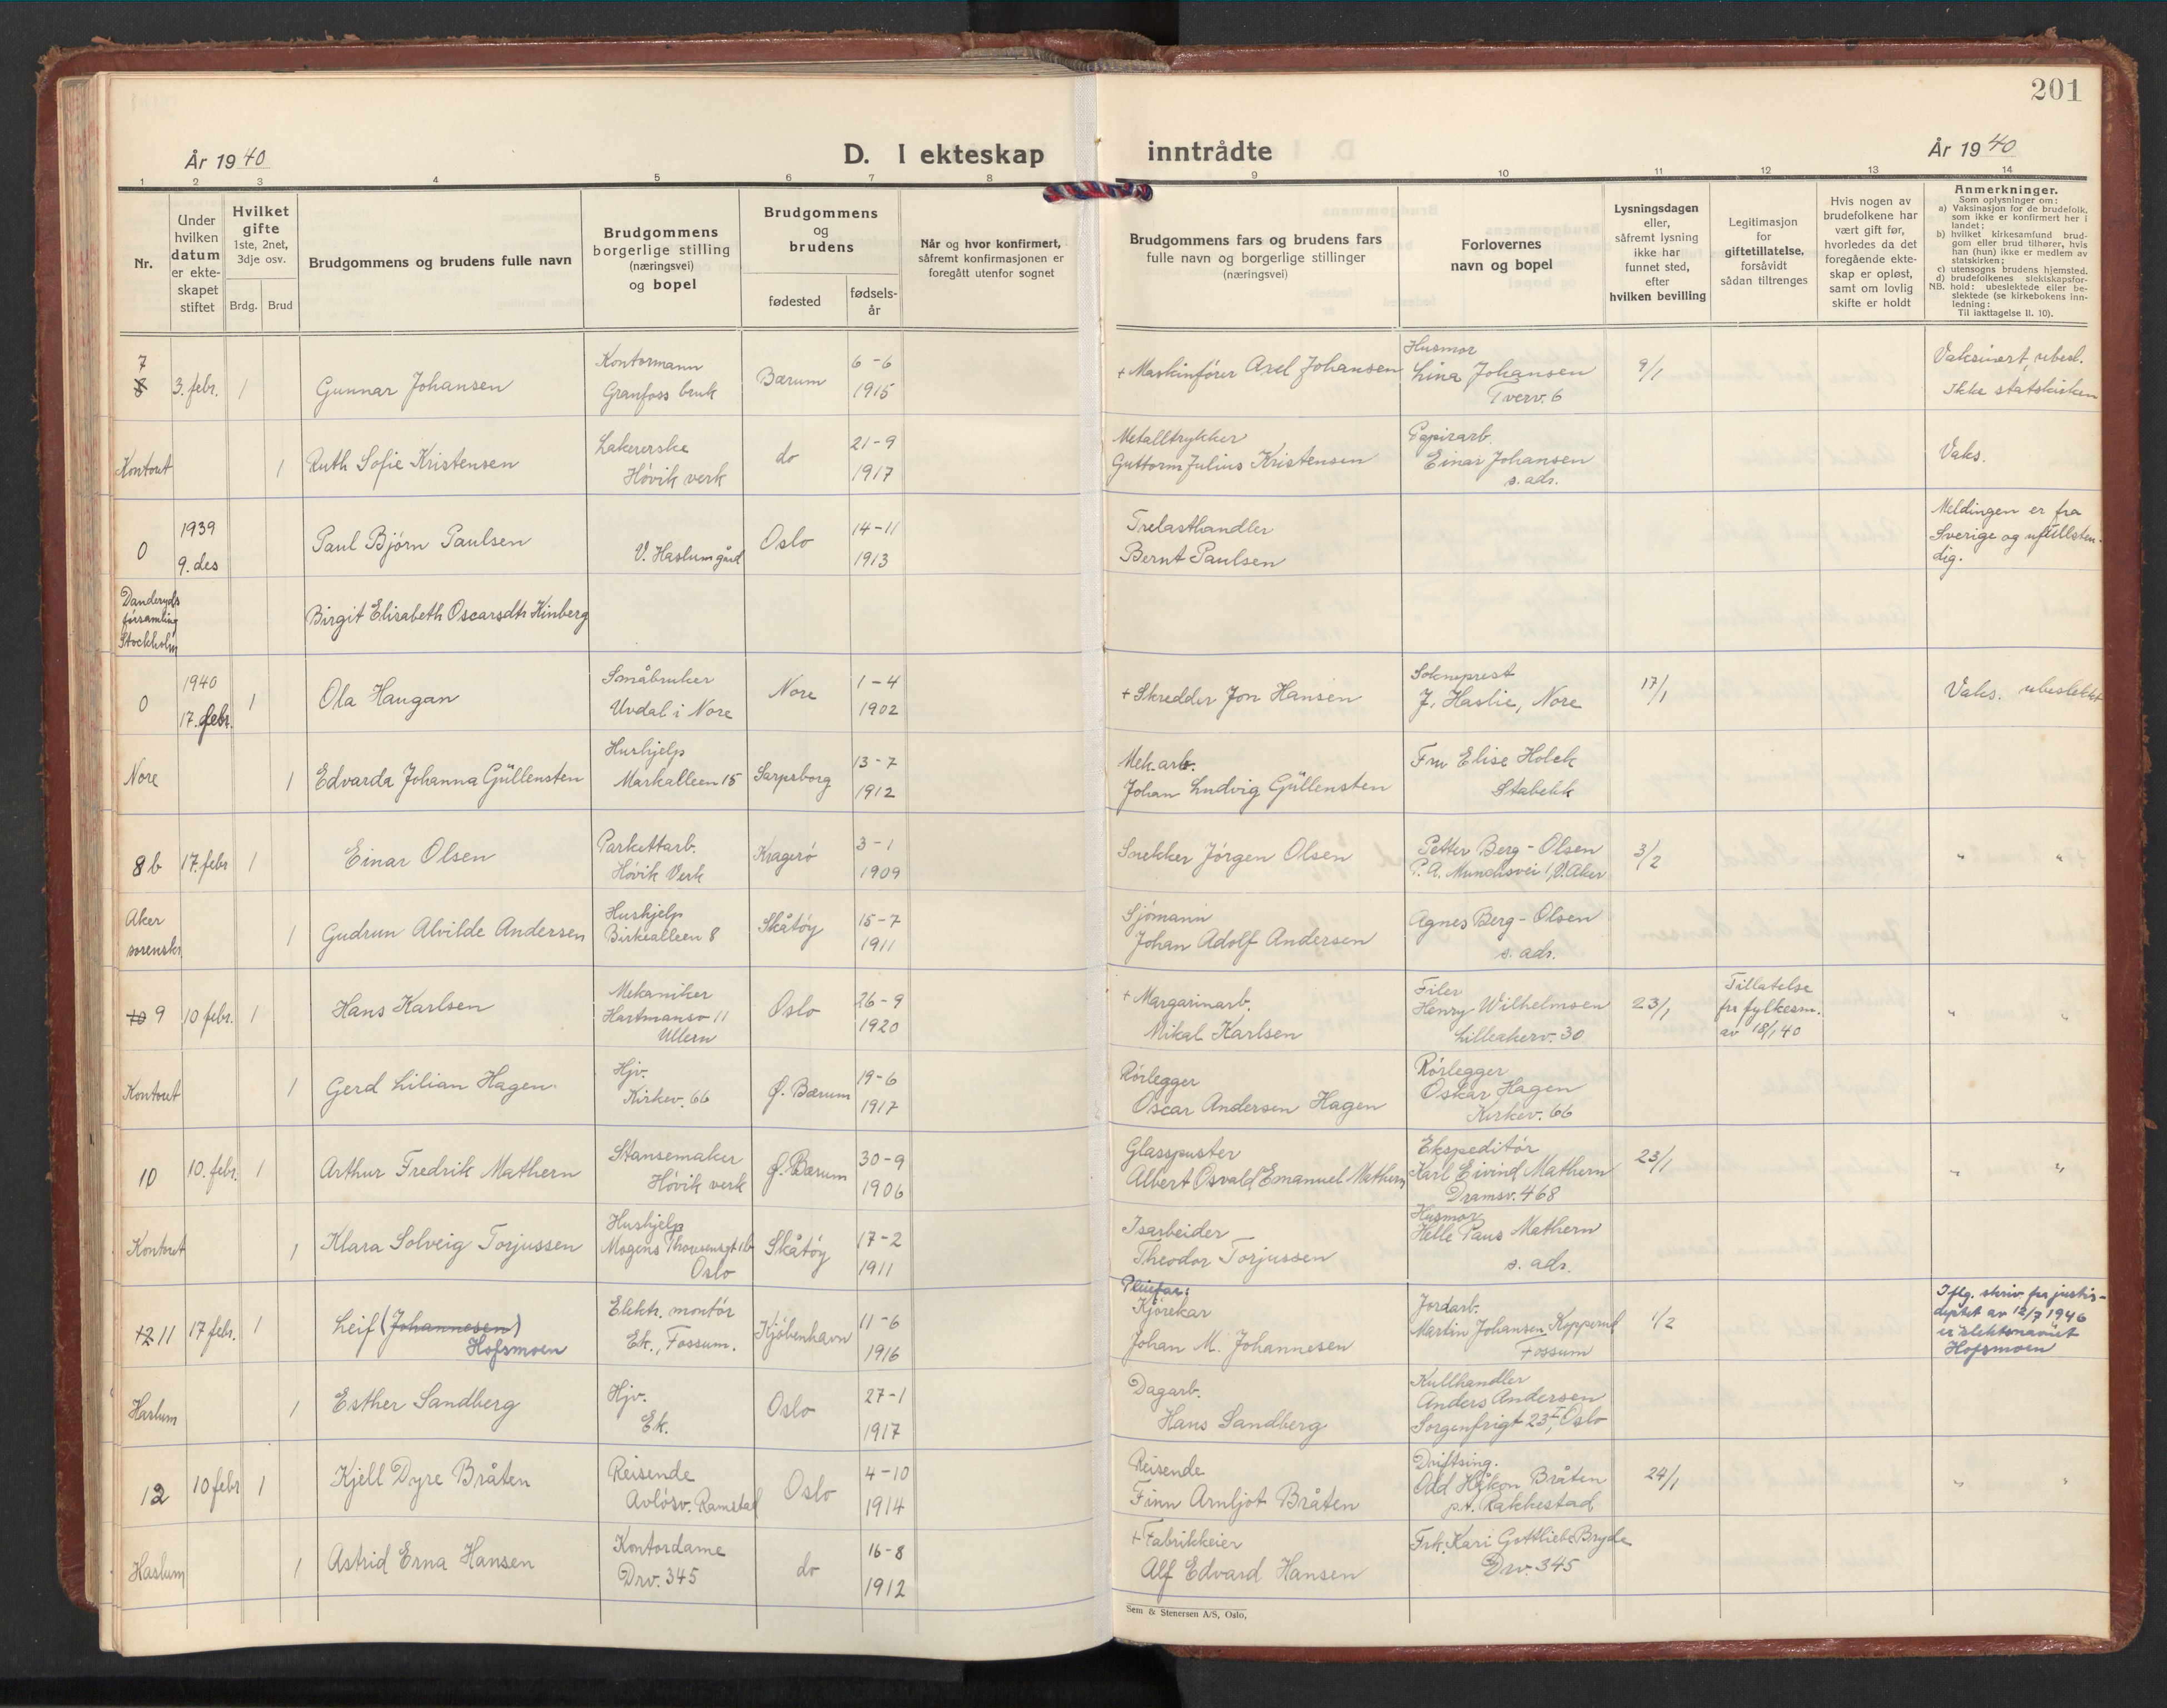 201
År 1940
D. I ekteskap inntrådte
År 1940
1 2 3 4 5 6 7 8 9 10 11 12 13 14
Nr.
Under
hvilken
datum
er ekte-
skapet
stiftet
Hvilket
gifte
1ste, 2net,
3dje osv.
Brdg. Brud
Brudgommens og brudens fulle navn
Brudgommens
borgerlige stilling
(næringsvei)
og bopel
Brudgommens
og
brudens
fødested
fødsels-
år
Når og hvor konfirmert,
såfremt konfirmasjonen er
foregått utenfor sognet
Brudgommens fars og brudens fars
fulle navn og borgerlige stillinger
(næringsvei)
Forlovernes
navn og bopel
Lysningsdagen
eller,
såfremt lysning
ikke har
funnet sted,
efter
hvilken bevilling
Legitimasjon
for
giftetillatelse,
forsåvidt
sådan tiltrenges
Hvis nogen av
brudefolkene har
vært gift før,
hvorledes da det
foregående ekte-
skap er opløst,
samt om lovlig
skifte er holdt
Anmerkninger.
Som oplysninger om:
a) Vaksinasjon for de brudefolk,
som ikke er konfirmert her i
landet;
b) hvilket kirkesamfund brud-
gom eller brud tilhører, hvis
han (hun) ikke er medlem av
statskirken;
c) utensogns brudens hjemsted.
d) brudefolkenes slektskapsfor-
NB. hold: ubeslektede eller be-
slektede (se kirkebokens inn-
ledning:
Til iakttagelse II. 10).
7
8 3. febr. 1
Gunnar Johansen
Kontormann
Granfoss bruk
Bærum
6-6
1915
+ Maskinfører Axel Johansen
Husmor
Lina Johansen
Tverv. 6
9/1
Vaksinert, ubesl.
Ikke statskirken
Kontoret 1
Ruth Sofie Kristensen
Lakererske
Høvik verk
do
21-9
1917
Metalltrykker
Guttorm Julius Kristensen
Papirarb.
Einar Johansen
s. adr.
Vaks.
0
1939
9. des
Paul Bjørn Paulsen
V. Haslum gård
Oslo
14-11
1913
Trelasthandler
Bernt Paulsen
Meldingen er fra
Sverige og ufullsten-
dig.
Danderyds
församling
Stockholm
Birgit Elisabeth Oscarsdtr Kinberg
0
1940
17. febr. 1
Ola Haugan
Småbruker
Uvdal i Nore
Nore
1-4
1902
+ Skredder Jon Hansen
Sokneprest
J. Haslie, Nore
17/1
Vaks. ubeslektet
Nore 1
Edvarda Johanna Güllensten
Hushjelp
Markalleen 15
Sarpsborg
13-7
1912
Mek. arb.
Johan Ludvig Güllensten
Fru Elise Holck
Stabekk
8b 17. febr 1
Einar Olsen
Parkettarb.
Høvik Verk
Kragerø
3-1
1909
Snekker Jørgen Olsen
Petter Berg-Olsen
P. A. Munchsvei 1, V. Aker
3/2
" "
Aker
sorenskr. 1
Gudrun Alvilde Andersen
Hushjelp
Birkealleen 8
Skåtøy
15-7
1911
Sjømann
Johan Adolf Andersen
Agnes Berg-Olsen
s. adr.
10 9 10 febr. 1
Hans Karlsen
Mekaniker
Hartmansv 11
Ullern
Oslo
26-9
1920
+ Margarinarb.
Mikal Karlsen
Filer
Henry Wilhelmsen
Lilleakerv. 30
23/1
Tillatelse
fra fylkesm.
av 18/1 40
" "
Kontoret 1
Gerd Lilian Hagen
Hjv.
Kirkev. 66
Ø. Bærum
19-6
1917
Rørlegger
Oscar Andersen Hagen
Rørlegger
Oskar Hagen
Kirkev. 66
10 10. febr. 1
Arthur Fredrik Mathern
Stansemaker
Høvik verk
Ø. Bærum
30-9
1906
Glasspuster
Albert Osvald Emanuel Mathern
Ekspeditør
Karl Eivind Mathern
Dramsv. 468
23/1
" "
Kontoret 1
Klara Solveig Torjussen
Hushjelp
Mogens Thorsensgt 1b
Oslo
Skåtøy
17-2
1911
Isarbeider
Theodor Torjussen
Husmor
Helle Paus Mathern
s. adr.
12 11 17 febr. 1
Leif (Johannesen)
Hofsmoen
Elektr. montør
Ek., Fossum.
Kjøbenhavn
11-6
1916
Pleiefar:
Kjørekar
Johan M. Johannesen
Jordarb.
Martin Johansen Kopperud
Fossum
1/2
Iflg. skriv fra justis-
deptet av 12/7 1946
er slektsnavnet
Hofsmoen
Haslum 1
Esther Sandberg
Hjv.
Ek.
Oslo
27-1
1917
Dagarb.
Hans Sandberg
Kullhandler
Anders Andersen
Sorgenfrigt 23 I, Oslo
12 10 febr 1
Kjell Dyre Bråten
Reisende
Avløsv. Ramstad
Oslo
4-10
1914
Reisende
Finn Arnljot Bråten
Driftsing.
Odd Håkon Bråten
p.t. Rakkestad
24/1
" "
Haslum 1
Astrid Erna Hansen
Kontordame
Drv. 345
do
16-8
1912
+ Fabrikkeier
Alf Edvard Hansen
Frk. Kari Gottlieb Bryde
Drv. 345
Sem & Stenersen A/S, Oslo.